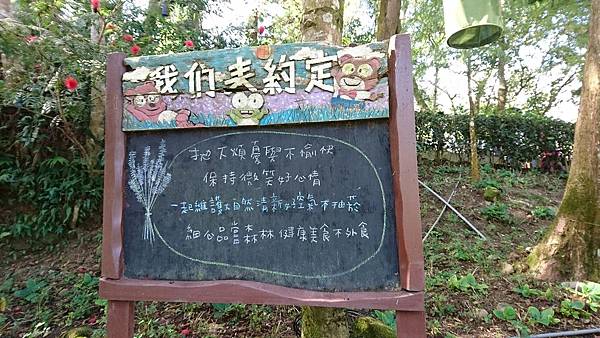 我们来約定
拋下煩憂與不愉快
保持微笑好心情
一起維護大自然清新好空氣不抽菸
細心品嘗森林健康美食不外食